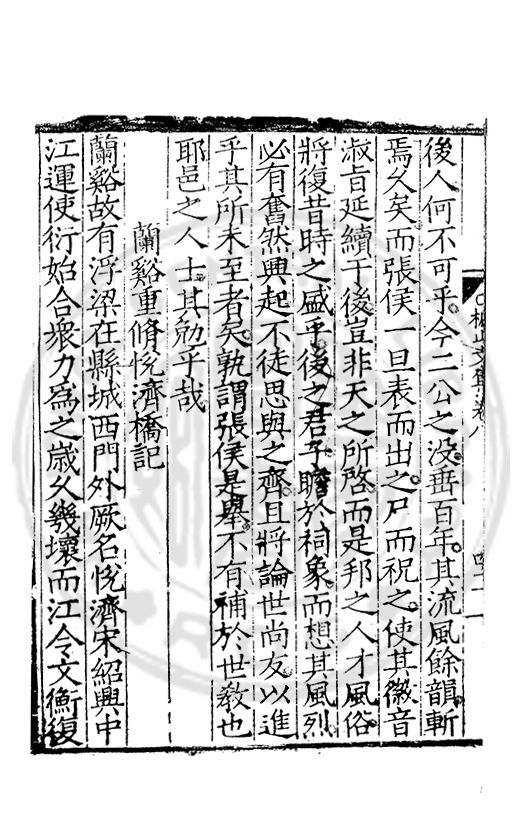 後人何不可乎今二公之没垂百年其流風餘韻斬
焉久矣而張侯一旦表而出之尸而祝之使其徽音
淑旨延續于後豈非天之所啓而是邦之人才風俗
將復昔時之盛乎後之君子瞻於祠象而想其風烈
必有奮然興起不徒思與之齊且將論世尚友以進
乎其所未至者矣孰謂張侯是舉不有補於世敎也
耶邑之人士其勉乎哉
蘭谿重脩悅濟橋記
蘭谿故有浮梁在縣城西門外厥名悅濟宋紹興中
江運使衍始合衆力爲之歲久幾壞而江令文衡復